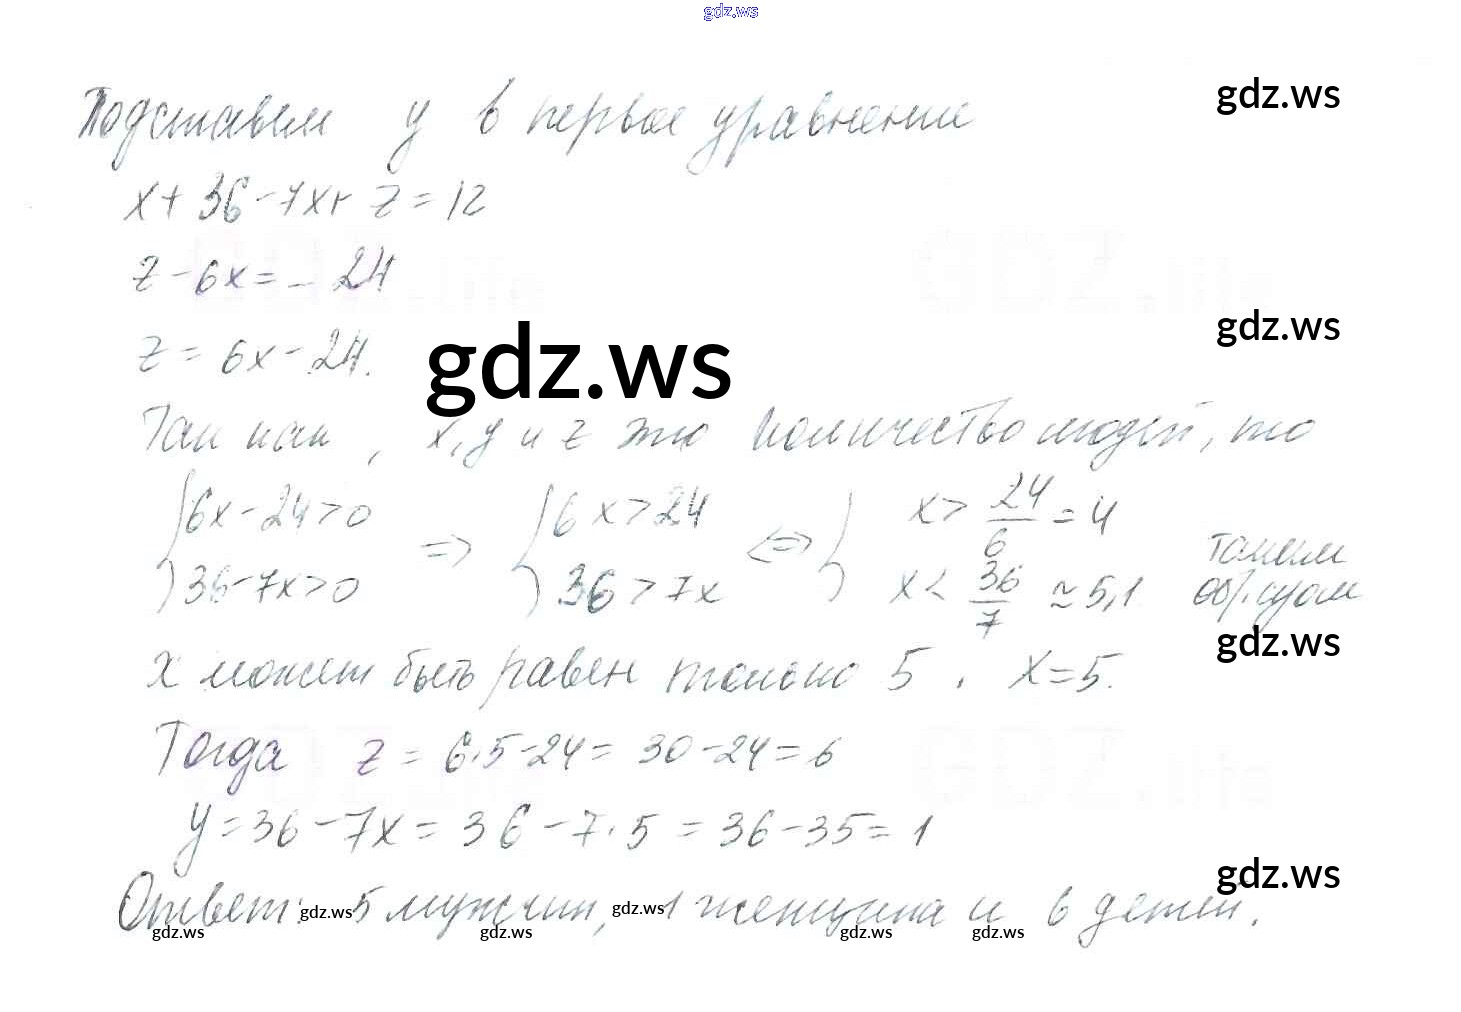 gdz.ws
Подставим y в первое уравнение
gdz.ws
x + 36 - 7x + z = 12
z - 6x = - 24
z = 6x - 24.
gdz.ws
gdz.ws
Так как, x, y и z это количество людей, то
{ 6x - 24 > 0 => { 6x > 24 <=> { x > 24/6 = 4
{ 36 - 7x > 0 { 36 > 7x { x < 36/7 ≈ 5,1 таким образом
gdz.ws
x может быть равен только 5. x = 5.
Тогда z = 6·5 - 24 = 30 - 24 = 6
y = 36 - 7x = 36 - 7·5 = 36 - 35 = 1
gdz.ws
Ответ: 5 мужчин, 1 женщина и 6 детей.
gdz.ws gdz.ws
gdz.ws gdz.ws gdz.ws gdz.ws
GDZ.life GDZ.life
GDZ.life GDZ.life